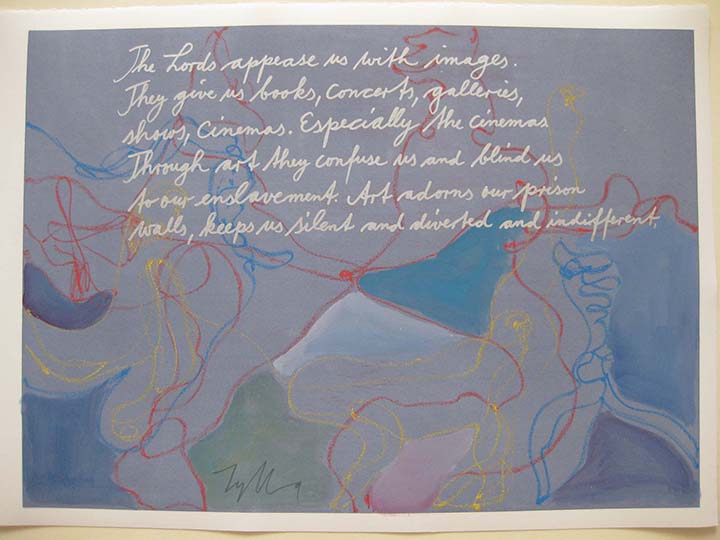 The Lords appease us with images.
They give us books, concerts, galleries,
shows, cinemas. Especially the cinemas
Through art they confuse us and blind us
to our enslavement. Art adorns our prison
walls, keeps us silent and diverted and indifferent.